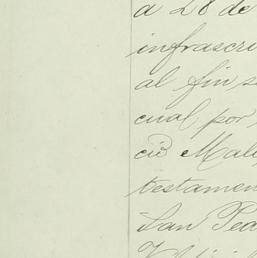 a 28 de
infrascri
al fin s
cual por
ció Mala
testamen
San Ped